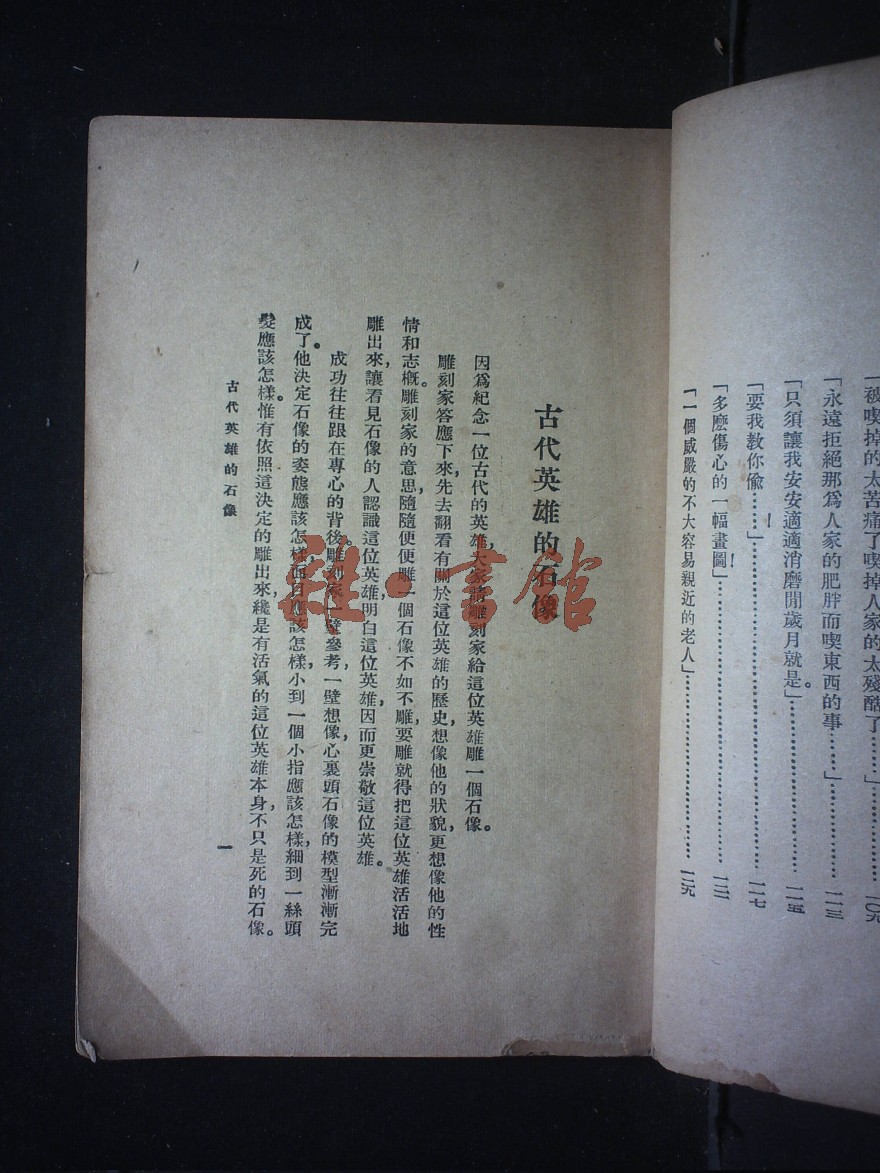 「被喫掉的太苦痛了喫掉人家的太殘酷了……」……一〇九
「永遠拒絕那爲人家的肥胖而喫東西的事……」……一一三
「只須讓我安安適適消磨閒歲月就是。」……一一五
「要我教你偷！」……一一七
「多麽傷心的一幅畫圖！」……一二一
「一個威嚴的不大容易親近的老人」……一二九
古代英雄的石像
因爲紀念一位古代的英雄，大家請雕刻家給這位英雄雕一個石像。
雕刻家答應下來，先去翻看有關於這位英雄的歷史，想像他的狀貌，更想像他的性
情和志概。雕刻家的意思，隨隨便便雕一個石像不如不雕，要雕就得把這位英雄活活地
雕出來，讓看見石像的人認識這位英雄，明白這位英雄，因而更崇敬這位英雄。
成功往往跟在專心的背後。雕刻家一壁參考，一壁想像，心裏頭石像的模型漸漸完
成了。他決定石像的姿態應該怎樣，面目應該怎樣，小到一個小指應該怎樣，細到一絲頭
髮應該怎樣。惟有依照這決定的雕出來，纔是有活氣的這位英雄本身，不只是死的石像。
古代英雄的石像
一
雜·書館